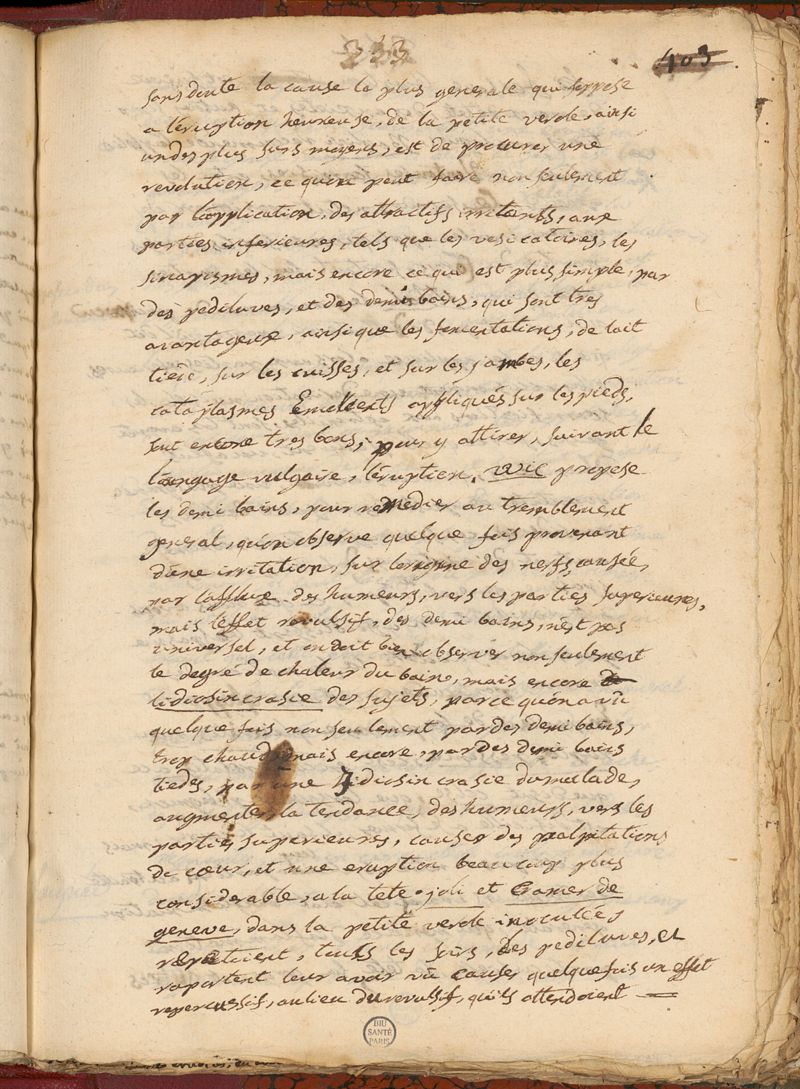 333
403
sans doute la cause la plus generale qui soppose
a l'eruption heureuse, de la petite verole, ainsi
un des plus surs moyens, est de procurer une
revolution, ce qu'on peut faire non seulement
par l'application, des attractifs irritants, aux
parties inferieures, tels que les vesicatoires, les
sinapismes, mais encore ce qui est plus simple, par
des pediluves, et des demi bains, qui sont tres
avantageux, ainsi que les fomentations, de lait
tiède, sur les cuisses, et sur les jambes, les
cataplasmes Emollients appliqués sur les pieds,
sont encore tres bons, pour y attirer, suivant le
langage vulgaire, l'eruption. wic propose
les demi bains, pour remedier au tremblement
general, qu'on observe quelque fois provenant
d'une irritation, sur l'origine des nerfs, causée,
par l'afflux des humeurs, vers les parties superieures,
mais l'effet revulsif, des demi bains, n'est pas
universel, et on doit bien observer non seulement
le degré de chaleur du bain, mais encore
l'idiosincrasie des sujets, parce qu'on a vû
quelque fois non seulement par des demi bains,
trop chauds mais encore, par des demi bains
tiedes, par une idiosincrasie du malade,
augmenter la tendance, des humeurs, vers les
parties superieures, causer des palpitations
de cœur, et une eruption beaucoup plus
considerable, a la tete. joli et Cramer de
geneve, dans la petite verole inoculée,
repetoient, touts les soirs, des pediluves, et
raportent leur avoir vû causer quelque fois un effet
repercussif, au lieu du revulsif, qu'ils attendoient
BIU
SANTÉ
PARIS